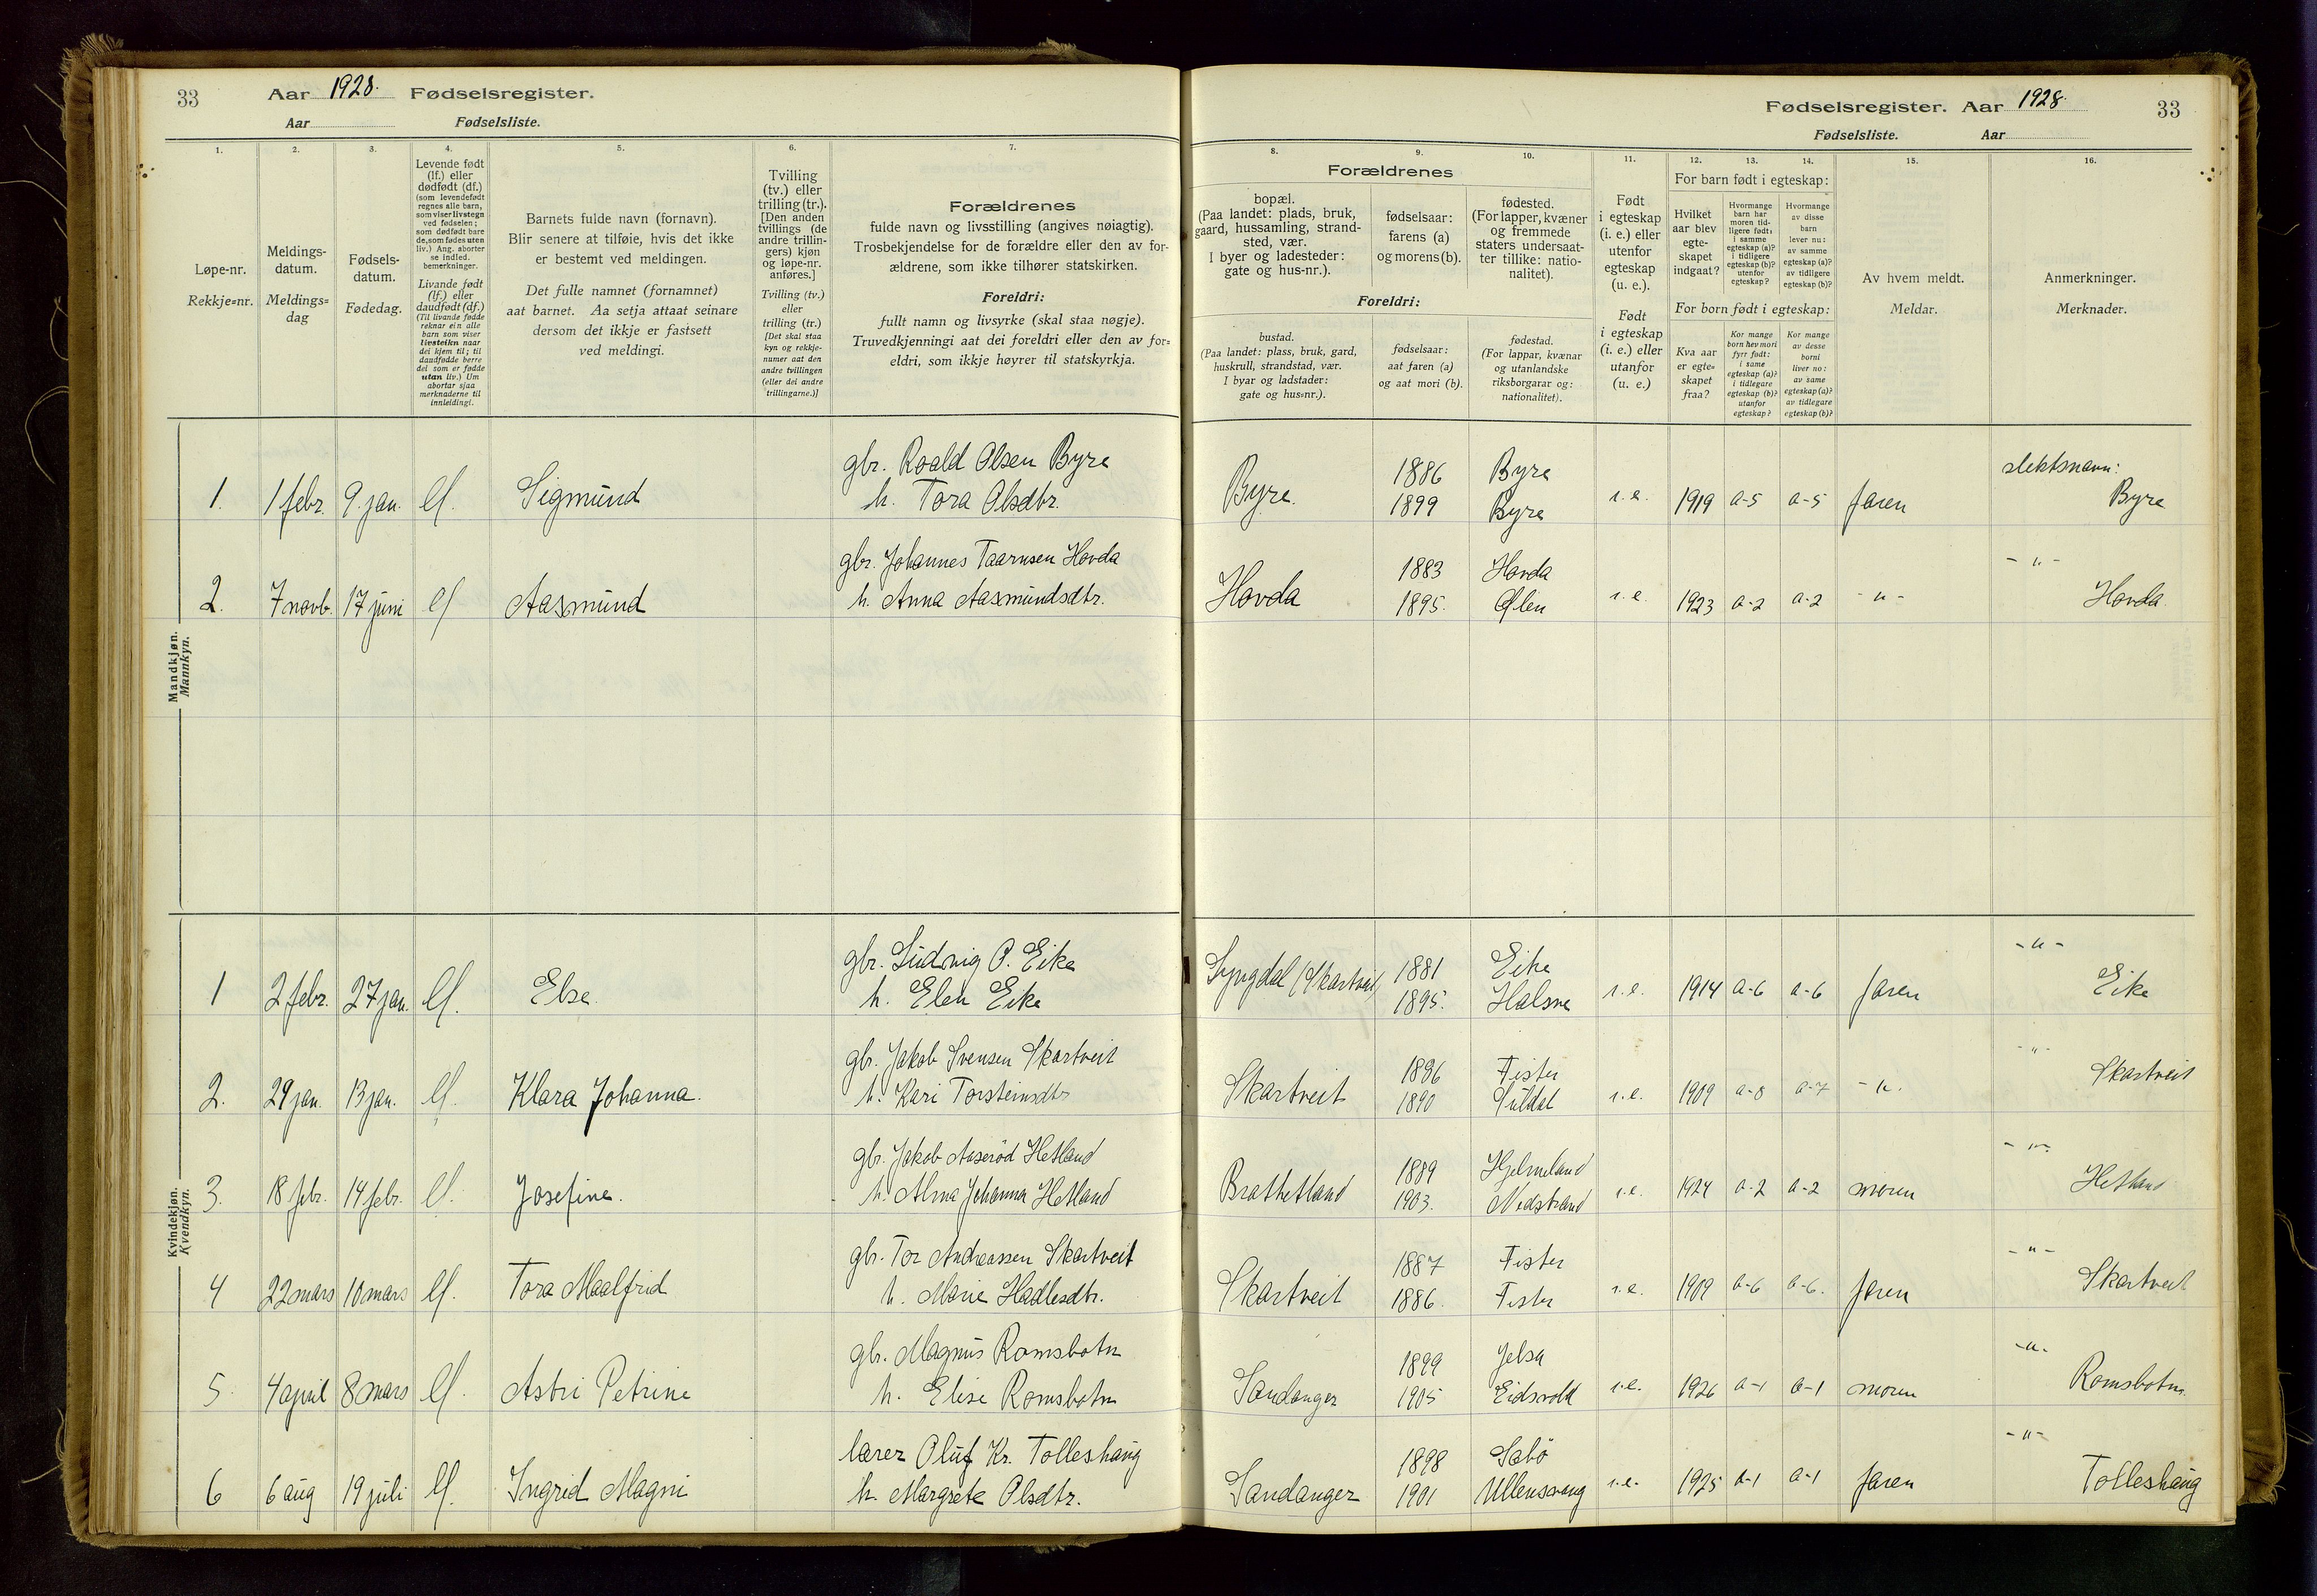 33 Aar 1928. Fødselsregister.
Aar Fødselsliste.
1. 2. 3. 4. 5. 6. 7.
Løpe-nr.
Rekkje=nr.
Meldings-
datum.
Meldings=
dag
Fødsels-
datum.
Fødedag.
Levende født
(lf.) eller
dødfødt (df.)
(som levendefødt
regnes alle barn,
som viser livstegn
ved fødselen;
som dødfødt bare
de, som fødes uten
liv.) Ang. aborter
se indled.
bemerkninger.
Livande født
(lf.) eller
daudfødt (df.)
(Til livande fødde
reknar ein alle
barn som viser
livsteikn naar
dei kjem til; til
daudfødde berre
dei som er fødde
utan liv.) Um
abortar sjaa
merknaderne til
innleidingi.
Barnets fulde navn (fornavn).
Blir senere at tilføie, hvis det ikke
er bestemt ved meldingen.
Det fulle namnet (fornamnet)
aat barnet. Aa setja attaat seinare
dersom det ikkje er fastsett
ved meldingi.
Tvilling
(tv.) eller
trilling (tr.).
[Den anden
tvillings (de
andre trillin-
gers) kjøn
og løpe-nr.
anføres.]
Tvilling (tv.)
eller
trilling (tr.)
[Det skal staa
kyn og rekkje-
numer aat den
andre tvillingen
(eller dei andre
trillingarne.)]
Forældrenes
fulde navn og livsstilling (angives nøiagtig).
Trosbekjendelse for de forældre eller den av for-
ældrene, som ikke tilhører statskirken.
Foreldri:
fullt namn og livsyrke (skal staa nøgje).
Truvedkjenningi aat dei foreldri eller den av for=
eldri, som ikkje høyrer til statskyrkja.
Mandkjøn.
Mannkyn.
gbr. Roald Olsen Byre
1. 1 febr. 9. jan. lf. Sigmund h. Tora Olsdtr.
gbr. Johannes Taarnsen Hovda
2. 7 novb. 17 juni lf Aasmund h. Anna Aasmundsdtr.
Kvindekjøn.
Kvendkyn.
gbr. Ludvig O. Eike
1 2 febr. 27 jan. lf. Else. h. Elen Eike
gbr. Jakob Svensen Skartveit
2. 29 jan. 13 jan. lf. Klara Johanna. h. Kari Torsteinsdtr
gbr. Jakob Aaserød Hetland
3. 18 febr. 14 febr. lf. Josefine. h. Alma Johanna Hetland
gbr. Tor Andreassen Skartveit
4 22 mars 10 mars lf. Tora Maalfrid h. Marie Hadlesdtr.
gbr. Magnus Romsbotn
5. 4 april 8 mars lf. Astri Petrine h. Elise Romsbotn
lærer Oluf Kr. Tolleshaug
6 6 aug 19 juli lf. Ingrid Magni h. Margrete Olsdtr.
Fødselsregister. Aar 1928. 33
Fødselsliste. Aar
8. 9. 10. 11. 12. 13. 14. 15. 16.
Forældrenes
bopæl.
(Paa landet: plads, bruk,
gaard, hussamling, strand-
sted, vær.
I byer og ladesteder:
gate og hus-nr.).
fødselsaar:
farens (a)
og morens (b).
fødested.
(For lapper, kvæner
og fremmede
staters undersaat-
ter tillike: natio-
nalitet).
Foreldri:
bustad.
(Paa landet: plass, bruk, gard,
huskrull, strandstad, vær.
I byar og ladstader:
gate og hus=nr.).
fødselsaar:
aat faren (a)
og aat mori (b).
fødestad.
(For lappar, kvænar
og utanlandske
riksborgarar og:
nationalitet).
Født
i egteskap
(i. e.) eller
utenfor
egteskap
(u. e.).
Født
i egteskap
(i. e.) eller
utanfor
(u. e.)
For barn født i egteskap:
Hvilket
aar blev
egte-
skapet
indgaat?
Hvormange
barn har
moren tid-
ligere født:
i samme
egteskap (a)?
i tidligere
egteskap (b)?
utenfor
egteskap?
Hvormange
av disse
barn
lever nu:
av samme
egteskap (a)?
av tidligere
egteskap (b)?
For born født i egteskap:
Kva aar
er egte=
skapet
fraa?
Kor mange
born hev mori
fyrr født:
i same
egteskap (a)?
i tidlegare
egteskap (b)?
utanfor
egteskap?
Kor mange
av desse
borni
liver no:
av same
egteskap (a)?
av tidlegare
egteskap (b)?
Av hvem meldt.
Meldar.
Anmerkninger.
Merknader.
1886 Byre slektsnavn:
Byre. 1899 Byre i. e. 1919 a-5 a-5 faren Byre
1883 Hovda -"-
Hovda 1895. Ølen i. e. 1923 a-2 a-2 -"- Hovda.
1881 Eike -"-
Lyngdal (Skartveit) 1895. Halsne i. e. 1914 a-6 a-6 faren Eike
1886 Fister -"-
Skartveit 1890 Suldal i. e. 1909 a-8 a-7 -"- Skartveit
1889 Hjelmeland -"-
Brathetland 1903. Nedstrand i. e. 1924 a-2 a-2 moren Hetland
1887 Fister -"-
Skartveit 1886. Fister i. e. 1909 a-6 a-6. faren Skartveit
1899 Jelsa -"-
Sandanger 1905 Eidsvold i. e. 1926 a-1 a-1 moren Romsbotn.
1898 Sabö -"-
Sandanger 1901 Ullensvang i. e. 1925 a-1 a-1 faren Tolleshaug